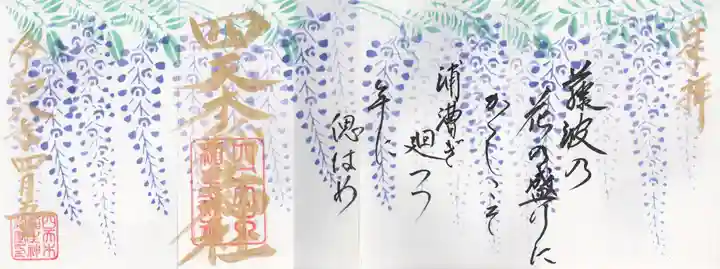 奉拝
藤波乃
花の盛りに
かくしこそ
浦漕ぎ
廻つつ
年に
偲はめ
四天木稲生神社
令和
四月